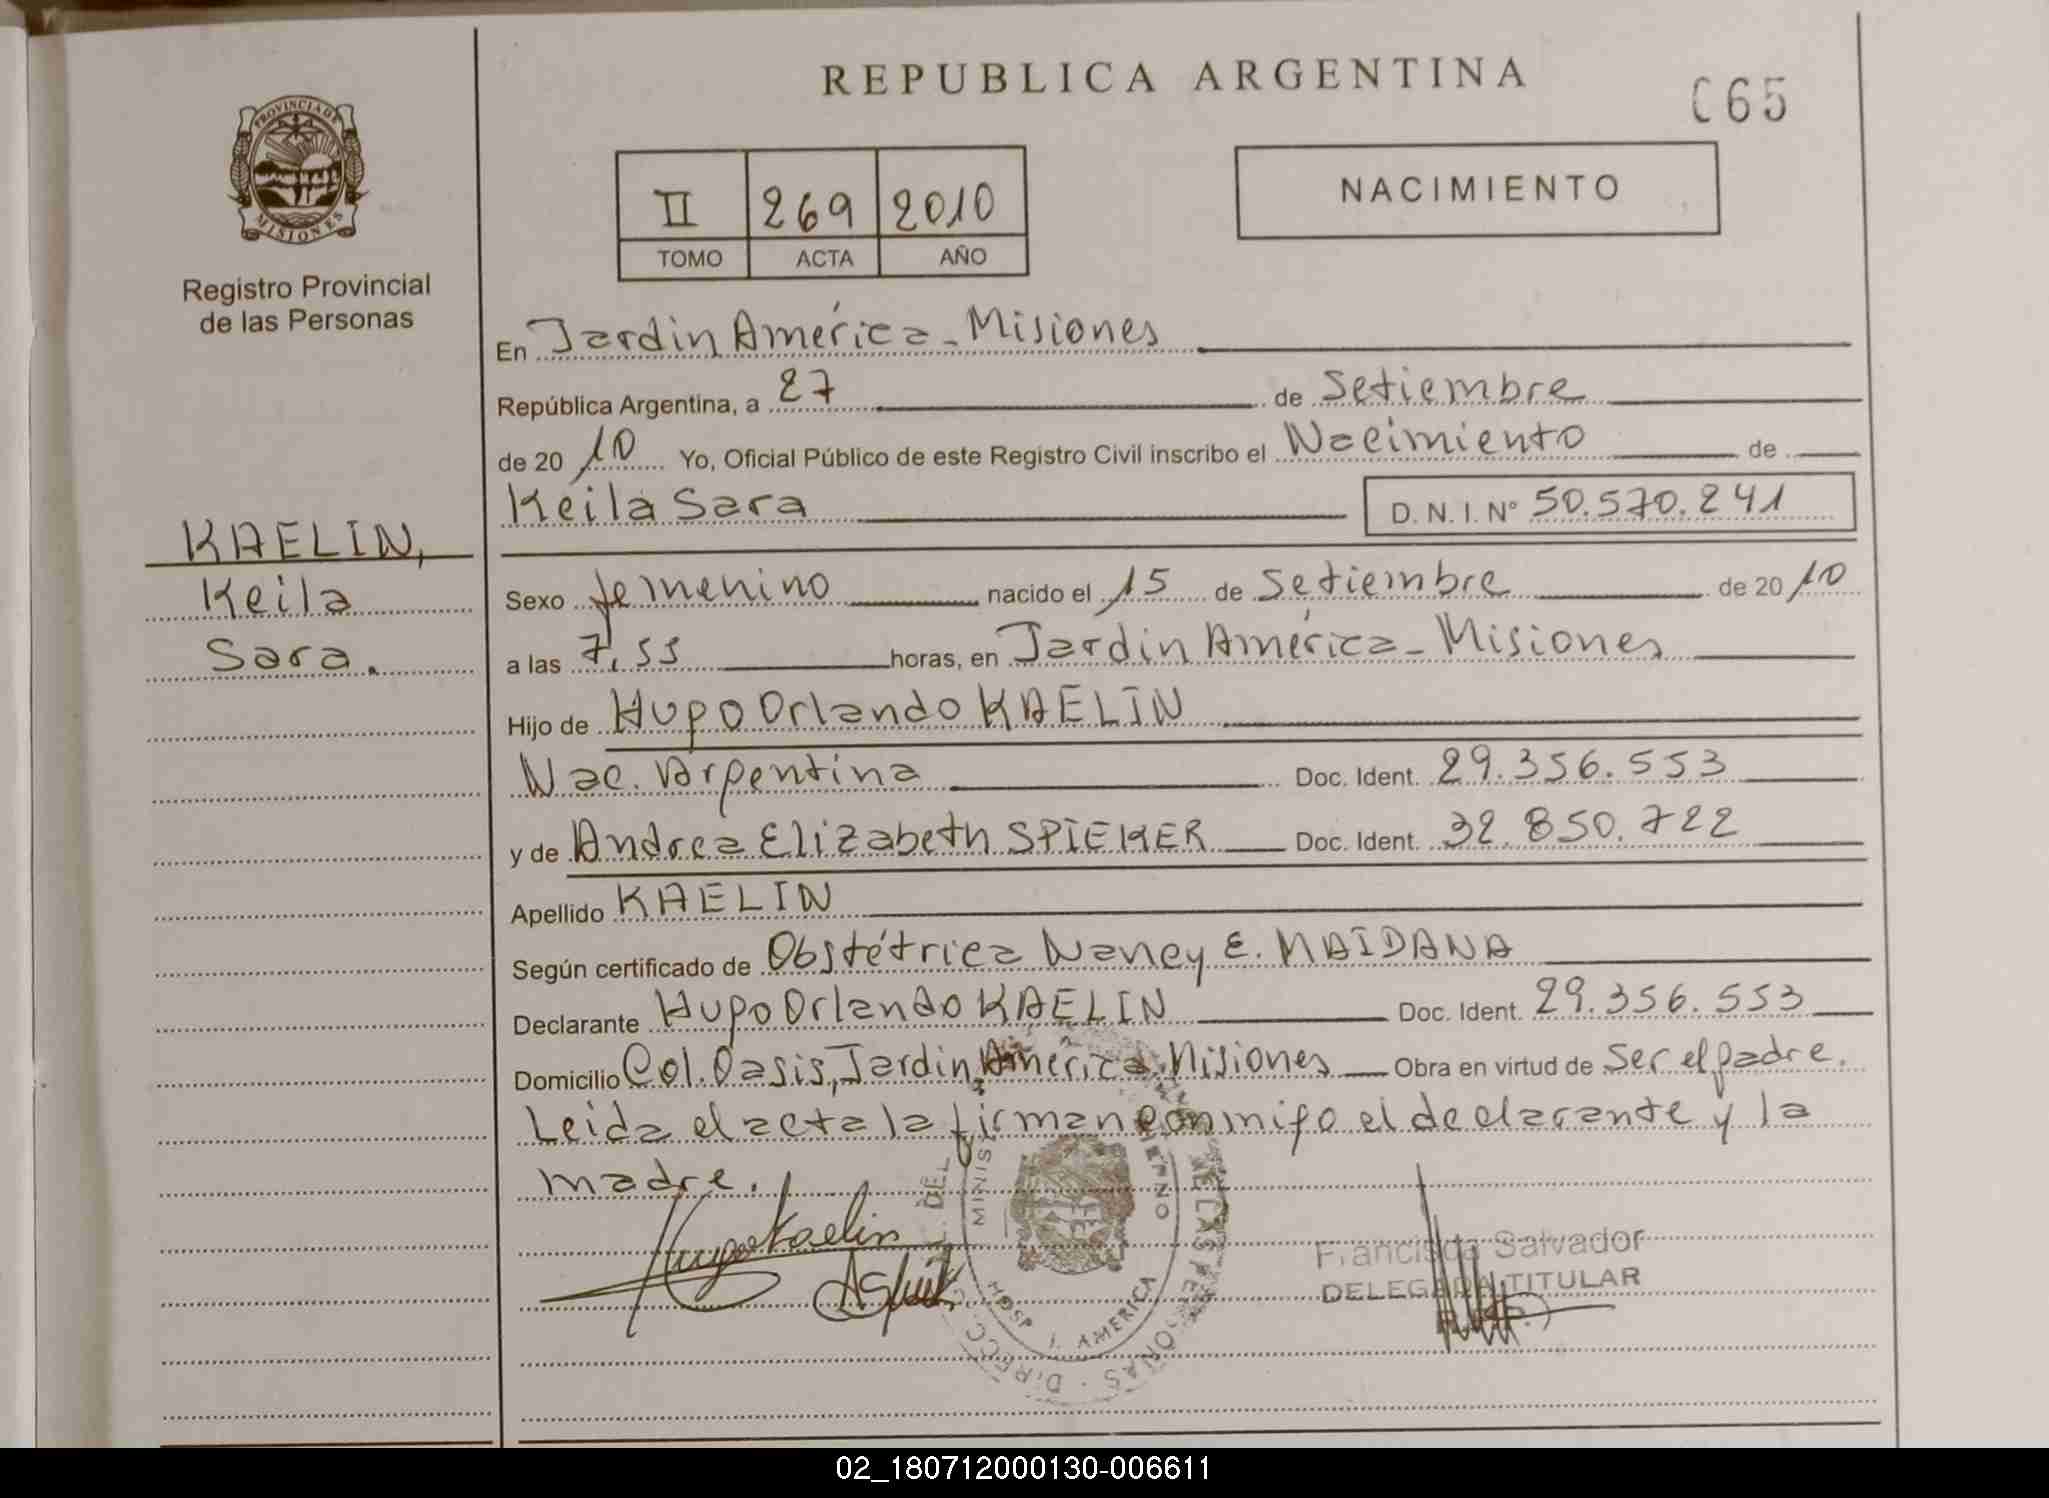 REPUBLICA ARGENTINA
C65
PROVINCIA DE
MISIONES
Registro Provincial
de las Personas
II 269 2010
TOMO ACTA AÑO
NACIMIENTO
En Jardin América - Misiones
República Argentina, a 27 de Setiembre
de 20 10 Yo, Oficial Público de este Registro Civil inscribo el Nacimiento de
Keila Sara D. N. I. Nº 50.570.241
KAELIN,
Keila
Sara.
Sexo femenino nacido el 15 de Setiembre de 20 10
a las 7,53 horas, en Jardin América - Misiones
Hijo de Hugo Orlando KAELIN
Nac. Argentina Doc. Ident. 29.356.553
y de Andrea Elizabeth SPIEKER Doc. Ident. 32.850.722
Apellido KAELIN
Según certificado de Obstétrica Nancy E. MAIDANA
Declarante Hugo Orlando KAELIN Doc. Ident. 29.356.553
Domicilio Col. Oasis, Jardin América, Misiones Obra en virtud de Ser el padre.
Leida el acta la firman conmigo el declarante y la
madre.
Hugo Kaelin
HOSP J. AMERICA
Francisca Salvador
DELEGADA TITULAR
02_180712000130-006611